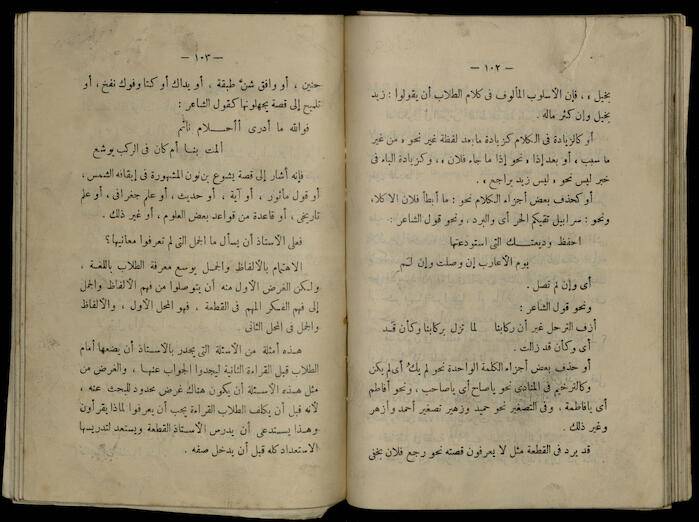 — ١٠٢ —
بخيل» ، فإن الأسلوب المألوف فى كلام الطلاب أن يقولوا : زيد
بخيل وإن كثر ماله .
أو كالزيادة فى الكلام كزيادة ما بعد لفظة غير نحو «من غير
ما سبب» أو بعد إذا «نحو إذا ما جاء فلان» ، وكزيادة الباء فى
خبر ليس نحو «ليس زيد براجع» .
أو كحذف بعض أجزاء الكلام نحو : ما أبطأ فلان الا كلا»
ونحو : سرابيل تقيكم الحر أى والبرد ، ونحو قول الشاعر :
احفظ وديعتك التى استودعتها
يوم الأعارب إن وصلت وإن لم
أى وإن لم تصل .
ونحو قول الشاعر :
أزف الترحل غير أن ركابنا لما تزل بركابنا وكأن قد
أى وكأن قد زالت .
أو حذف بعض أجزاء الكلمة الواحدة نحو لم يك أى لم يكن
وكالترخيم فى المنادى نحو ياصاح أى ياصاحب ، ونحو أفاطم
أى يافاطمة ، وفى التصغير نحو حميد وزهير تصغير أحمد وأزهر
وغير ذلك .
قد يرد فى القطعة مثل لا يعرفون قصته نحو رجع فلان بخفى
— ١٠٣ —
حنين ، أو وافق شن طبقة ، أو يداك أوكتا وفوك نفخ ، أو
تلميح إلى قصة يجهلونها كقول الشاعر :
فوالله ما أدرى أأحلام نائم
ألمت بنا أم كان فى الركب يوشع
فإنه أشار إلى قصة يشوع بن نون المشهورة فى إيقافه الشمس ،
أو قول مأثور ، أو آية ، أو حديث ، أو علم جغرافى ، أو علم
تاريخى ، أو قاعدة من قواعد بعض العلوم ، أو غير ذلك .
فعلى الأستاذ أن يسأل ما الجمل التى لم تعرفوا معانيها ؟
الاهتمام بالألفاظ والجمل يوسع معرفة الطلاب باللغة ،
ولكن الغرض الأول منه أن يتوصلوا من فهم الألفاظ والجمل
إلى فهم الفكر المهم فى القطعة ، فهو المحل الأول ، والألفاظ
والجمل فى المحل الثانى .
هذه أمثلة من الأسئلة التى يجدر بالأستاذ أن يضعها أمام
الطلاب قبل القراءة الثانية ليجدوا الجواب عنها ، والغرض من
مثل هذه الأسئلة أن يكون هناك غرض محدود للبحث عنه ،
لأنه قبل أن يكلف الطلاب القراءة يجب أن يعرفوا لماذا يقرأون
وهذا يستدعى أن يدرس الأستاذ القطعة ويستعد لتدريسها
الاستعداد كله قبل أن يدخل صفه .